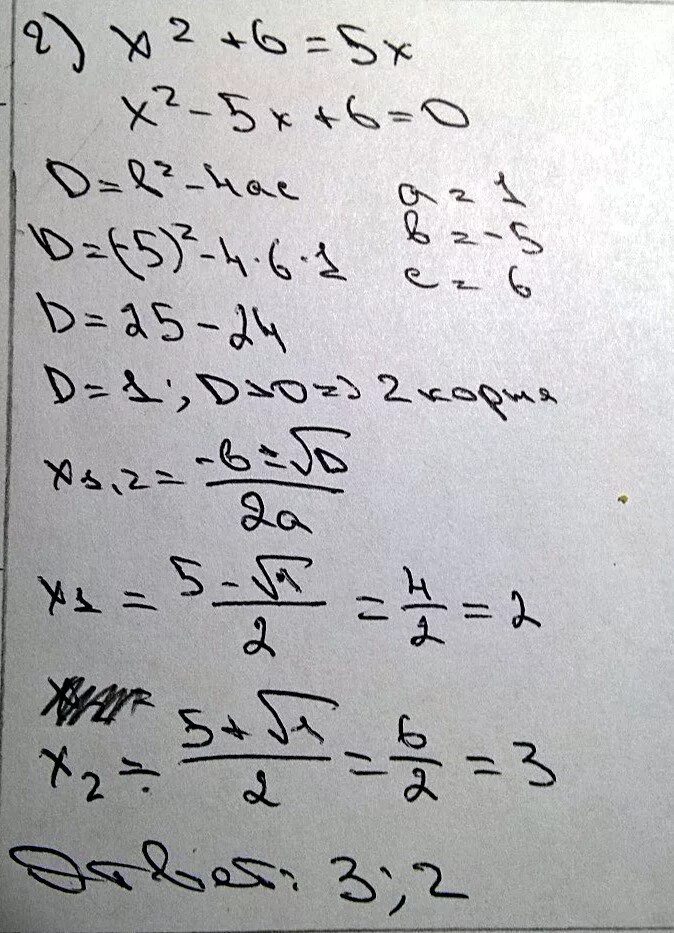 2) x² + 6 = 5x
x² - 5x + 6 = 0
D = b² - 4ac
a = 1
D = (-5)² - 4·6·1
b = -5
c = 6
D = 25 - 24
D = 1; D > 0 => 2 корня
x₁,₂ = (-b ± √D)/(2a)
x₁ = (5 - √1)/2 = 4/2 = 2
x₂ = (5 + √1)/2 = 6/2 = 3
Ответ: 3; 2